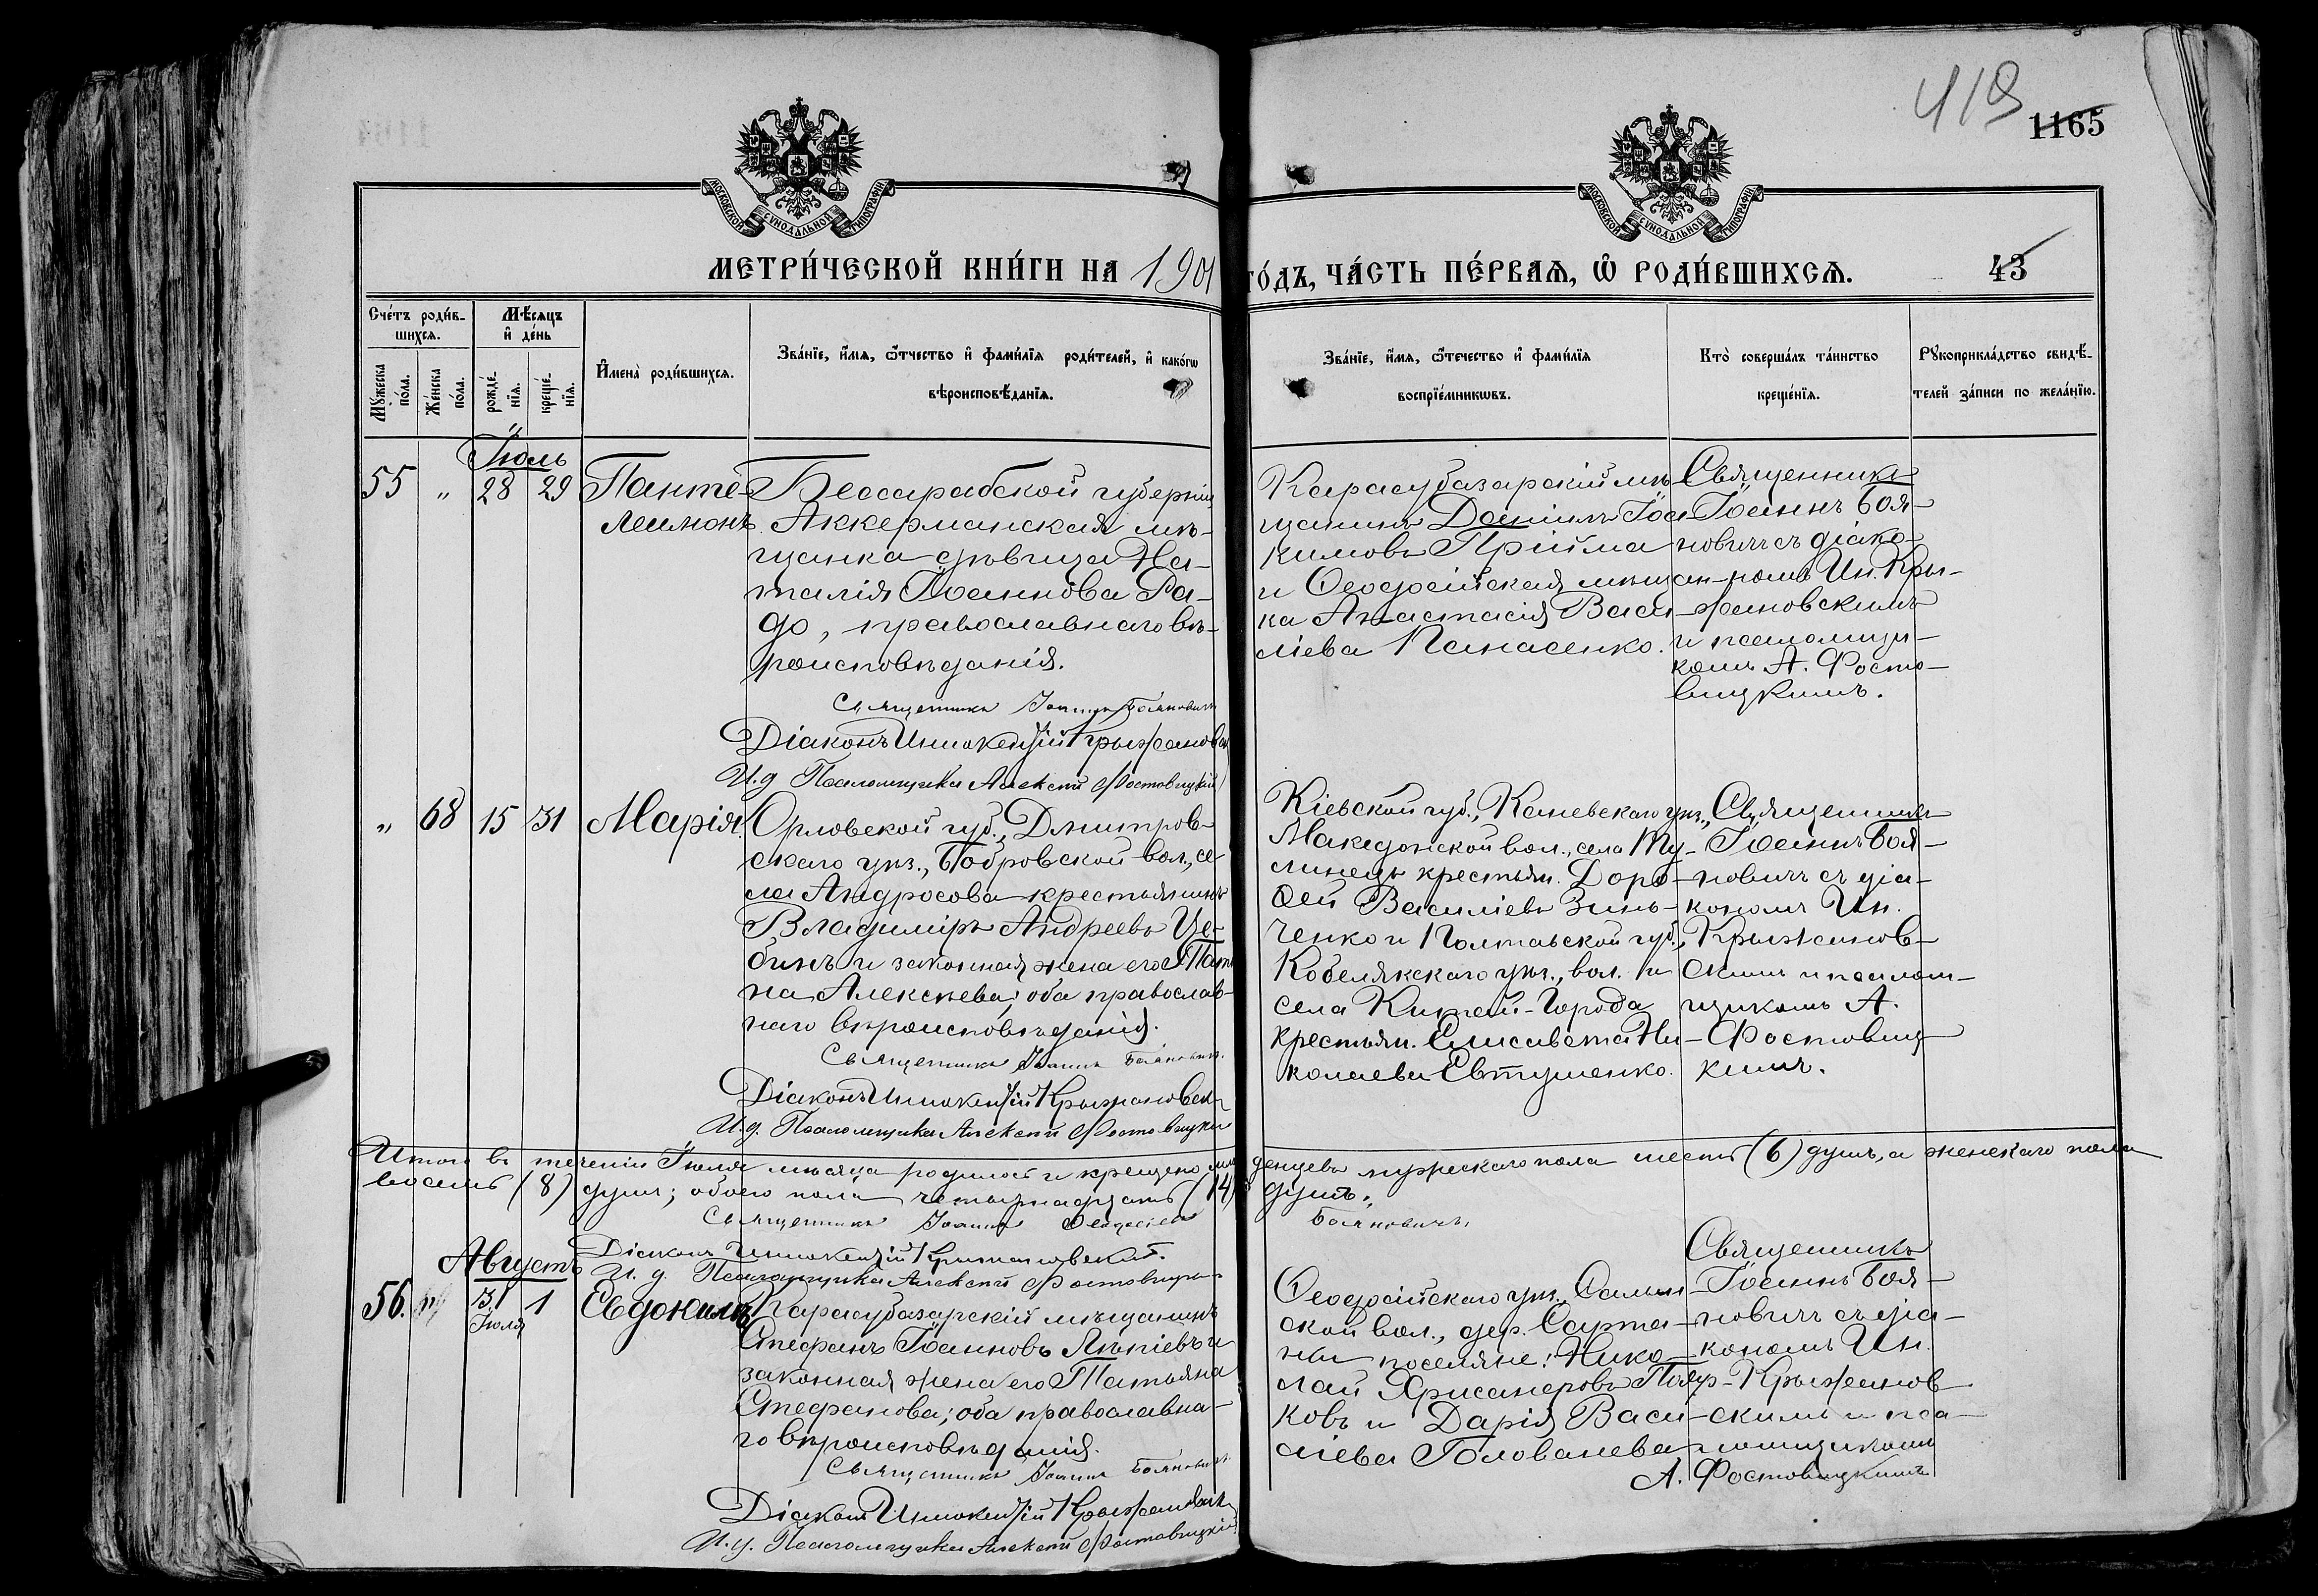 419
1165
МОСКОВСКОЙ СѴНОДАЛЬНОЙ ТИПОГРАФІИ
МОСКОВСКОЙ СѴНОДАЛЬНОЙ ТИПОГРАФІИ
МЕТРИ́ЧЕСКОЙ КНИ́ГИ НА 1901
ГО́ДЪ, ЧА́СТЬ ПЕ́РВАѦ, Ѡ҆ РОДИ́ВШИХСѦ.
43
Сче́тъ роди́в-
шихсѧ.
Мѣ́сѧцъ
и҆ де́нь
Мꙋ́жеска
по́ла.
Же́нска
по́ла.
рожде́-
нїѧ.
креще́-
нїѧ.
И҆мена̀ роди́вшихсѧ.
Зва́нїе, и҆́мѧ, ѻ҆́тчество и҆ фами́лїѧ роди́телей, и҆ како́гѡ
вѣроисповѣ́данїѧ.
Зва́нїе, и҆́мѧ, ѻ҆́течество и҆ фами́лїѧ
воспрїе́мникѡвъ.
Кто̀ соверша́лъ та́инство
креще́нїѧ.
Рꙋкоприкла́дство свидѣ́-
телей за́писи по жела́нїю.
Іюль
55 " 28 29 Панте-
леимонъ
Бессарабской губерніи,
Аккерманская мѣ-
щанка дѣвица На-
талія Іоаннова Ра-
до, православнаго вѣ-
роисповѣданія.
Священникъ Іоаннъ Бояновичъ
Діаконъ Иннокентій Крыжановск
И. д. Псаломщика Алексѣй Фостовицкій
Карасубазарскій мѣ-
щанинъ Даніилъ Іоа-
кимовъ Прійма
и Ѳеодосійская мѣщан-
ка Анастасія Васи-
ліева Панасенко.
Священникъ
Іоаннъ Боя-
новичъ съ діако-
номъ Ин. Кры-
жановскимъ
и псаломщи-
комъ А. Фосто-
вицкимъ.
" 68 15 31 Марія
Орловской губ., Дмитров-
скаго уѣз., Бобровской вол., се-
ла Андросова крестьянинъ
Владиміръ Андреевъ Це-
бинъ и законная жена его Татья
на Алексѣева; оба православ-
наго вѣроисповѣданія.
Священникъ Іоаннъ Бояновичъ.
Діаконъ Иннокентій Крыжановск
И. д. Псаломщика Алексѣй Фостовицкій
Кіевской губ., Каневскаго уѣз.,
Македонской вол., села Ту-
линецъ крестьян. Доро-
ѳей Василіевъ Зинь-
ченко и Полтавской губ.,
Кобелякскаго уѣз., вол. и
села Китай-Города
крестьян. Елисавета Ни-
колаева Евтушенко.
Священникъ
Іоаннъ Боя-
новичъ съ діа-
кономъ Ин.
Крыжанов-
скимъ и псалом-
щикомъ А.
Фостовиц-
кимъ.
Итого въ теченіи Іюля мѣсяца родилось и крещено мла
денцевъ мужескаго пола шесть (6) душъ, а женскаго пола
восемь (8) душъ; обоего пола четырнадцать (14)
душъ.
Священникъ Іоаннъ Ѳеодосіевъ
Бояновичъ.
Діаконъ Иннокентій Крыжановскій.
И. д. Псаломщика Алексѣй Фостовицкій
Августъ
56. 31 Іюля 1 Евдокимъ
Карасубазарскій мѣщанинъ
Стефанъ Іоанновъ и
законная жена его Татьяна
Стефанова; оба православна-
го вѣроисповѣданія.
Священникъ Іоаннъ Бояновичъ
Діаконъ Иннокентій Крыжановск
И. д. Псаломщика Алексѣй Фостовицкій
Ѳеодосійскаго уѣз., Салын-
ской вол., дер. Сарта-
ны поселяне: Нико-
лай Хрисанѳовъ
ковъ и Дарія Васи-
ліева Голованева
Священникъ
Іоаннъ Боя-
новичъ съ діа-
кономъ Ин.
Крыжанов-
скимъ и пса-
ломщикомъ
А. Фостовицкимъ